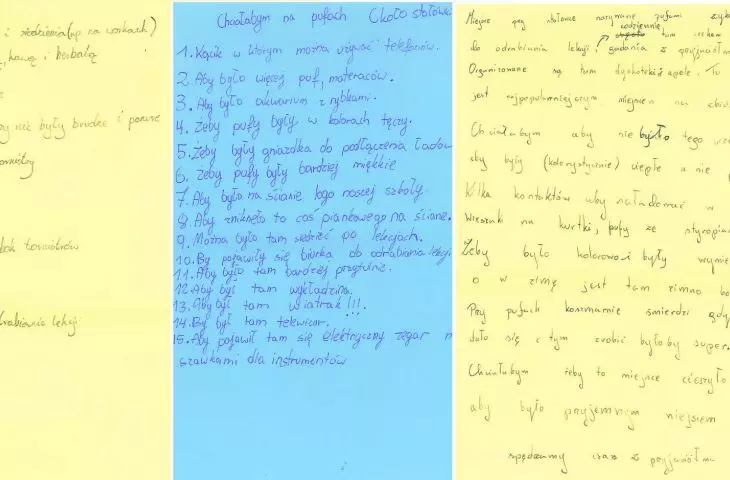 i siedzenia(np na workach)
kawą i herbatą
nie były brudne i porwane
tornistry
obok tornistrów
odrabiania lekcji
Chciałabym na pufach (koło stołówki
1. Kącik w którym można używać telefonów.
2. Aby było więcej puf, materaców.
3. Aby było akwarium z rybkami.
4. Żeby pufy były w kolorach tęczy.
5. Żeby były gniazdka do podłączenia ładow
6. Żeby pufy były bardziej miękkie
7. Aby było na ścianie logo naszej szkoły.
8. Aby zniknęło to coś piankowego na ścianie.
9. Można było tam siedzieć po lekcjach.
10. By pojawiły się biurka do odrabiania lekcji.
11. Aby było tam bardziej przytulnie.
12. Aby był tam wykładzina.
13. Aby był tam wiatrak!!!.
14. By był tam telewizor.
15. Aby pojawił tam się elektryczny zegar n
szawkami dla instrumentów
Miejsce przy stołówce nazywane pufami
codziennie
tam czekam
do odrabiania lekcji gadania z przyjaciółmi
Organizowane są tam dyskoteki i apele. Tu
jest najpopularniejszym miejscem na
Chciałabym aby nie było tego
aby były (kolorystycznie) ciepłe a nie
Kilka kontaktów aby naładować w
wieszak na kurtki, pufy ze styropian
Żeby było kolorowo i były
a w zimę jest tam zimno
Przy pufach koszmarnie śmierdzi gdyby
dało się z tym zrobić byłoby super.
Chciałabym żeby to miejsce cieszyło
aby było przyjemnym miejscem
spędzamy czas z przyjaciółmi